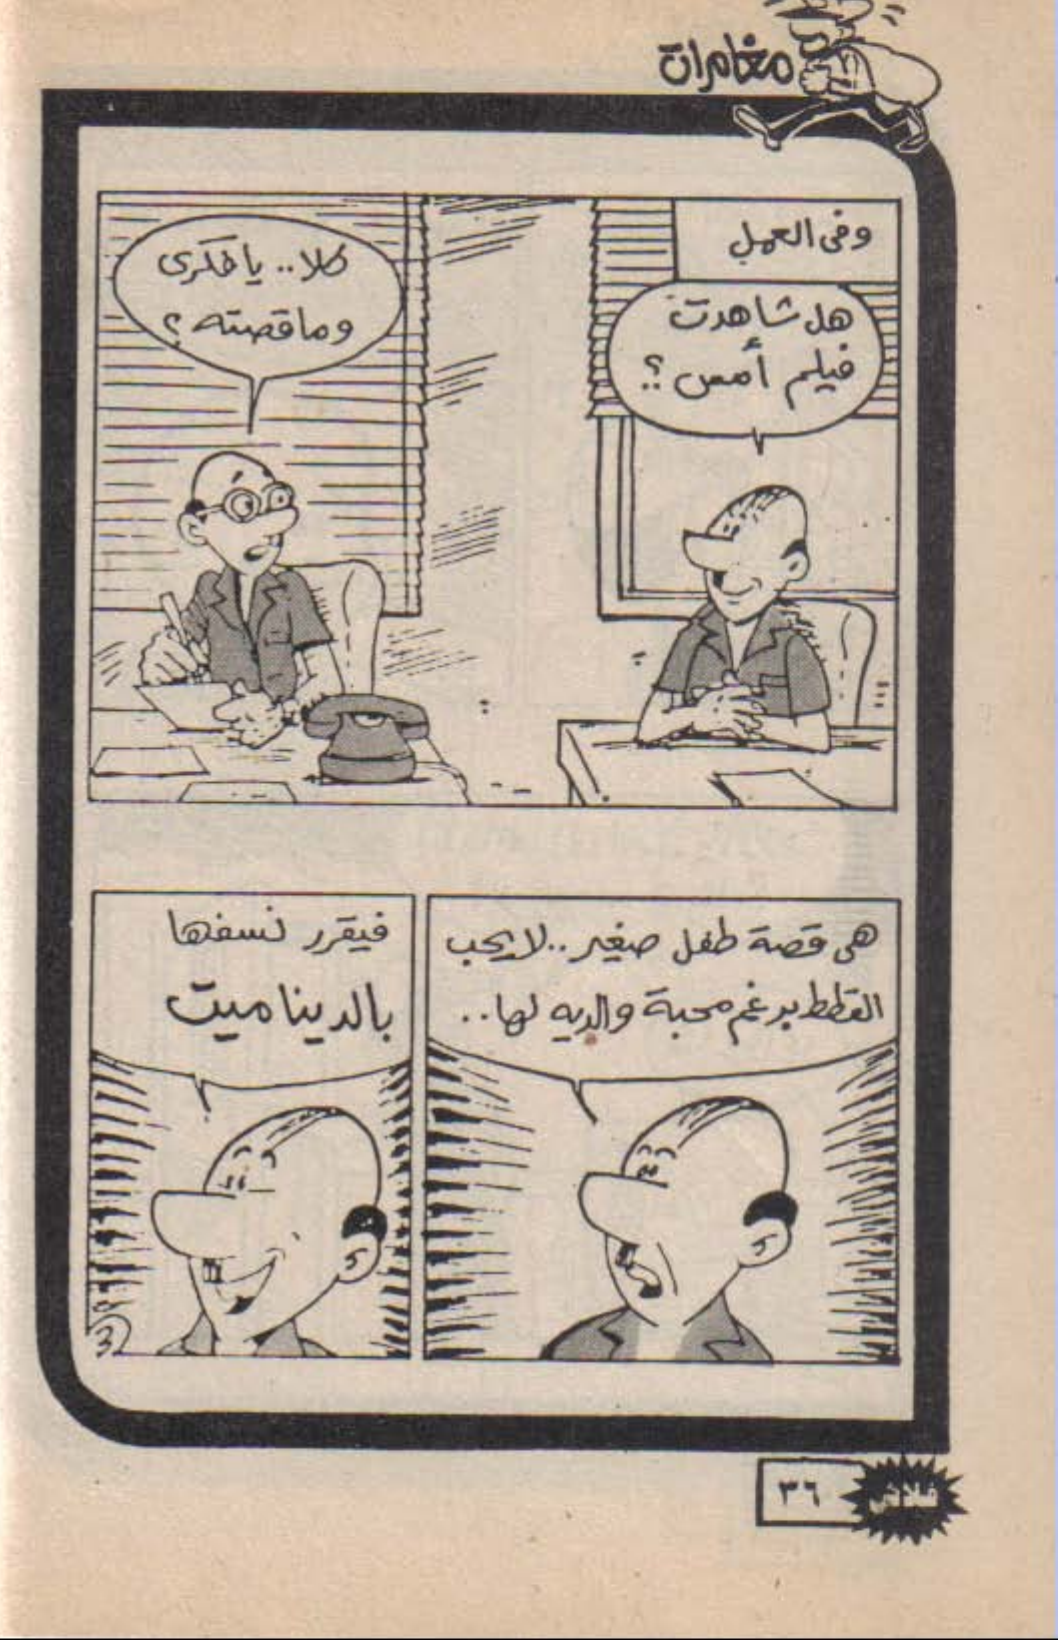 مغامرات
وفى العمل
هل شاهدت
فيلم أمس ؟
كلا.. يا فكرى
وما قصته ؟
هى قصة طفل صغير.. لا يحب
القطط برغم محبة والديه لها..
فيقرر نسفها
بالديناميت
٣٦
فلاش